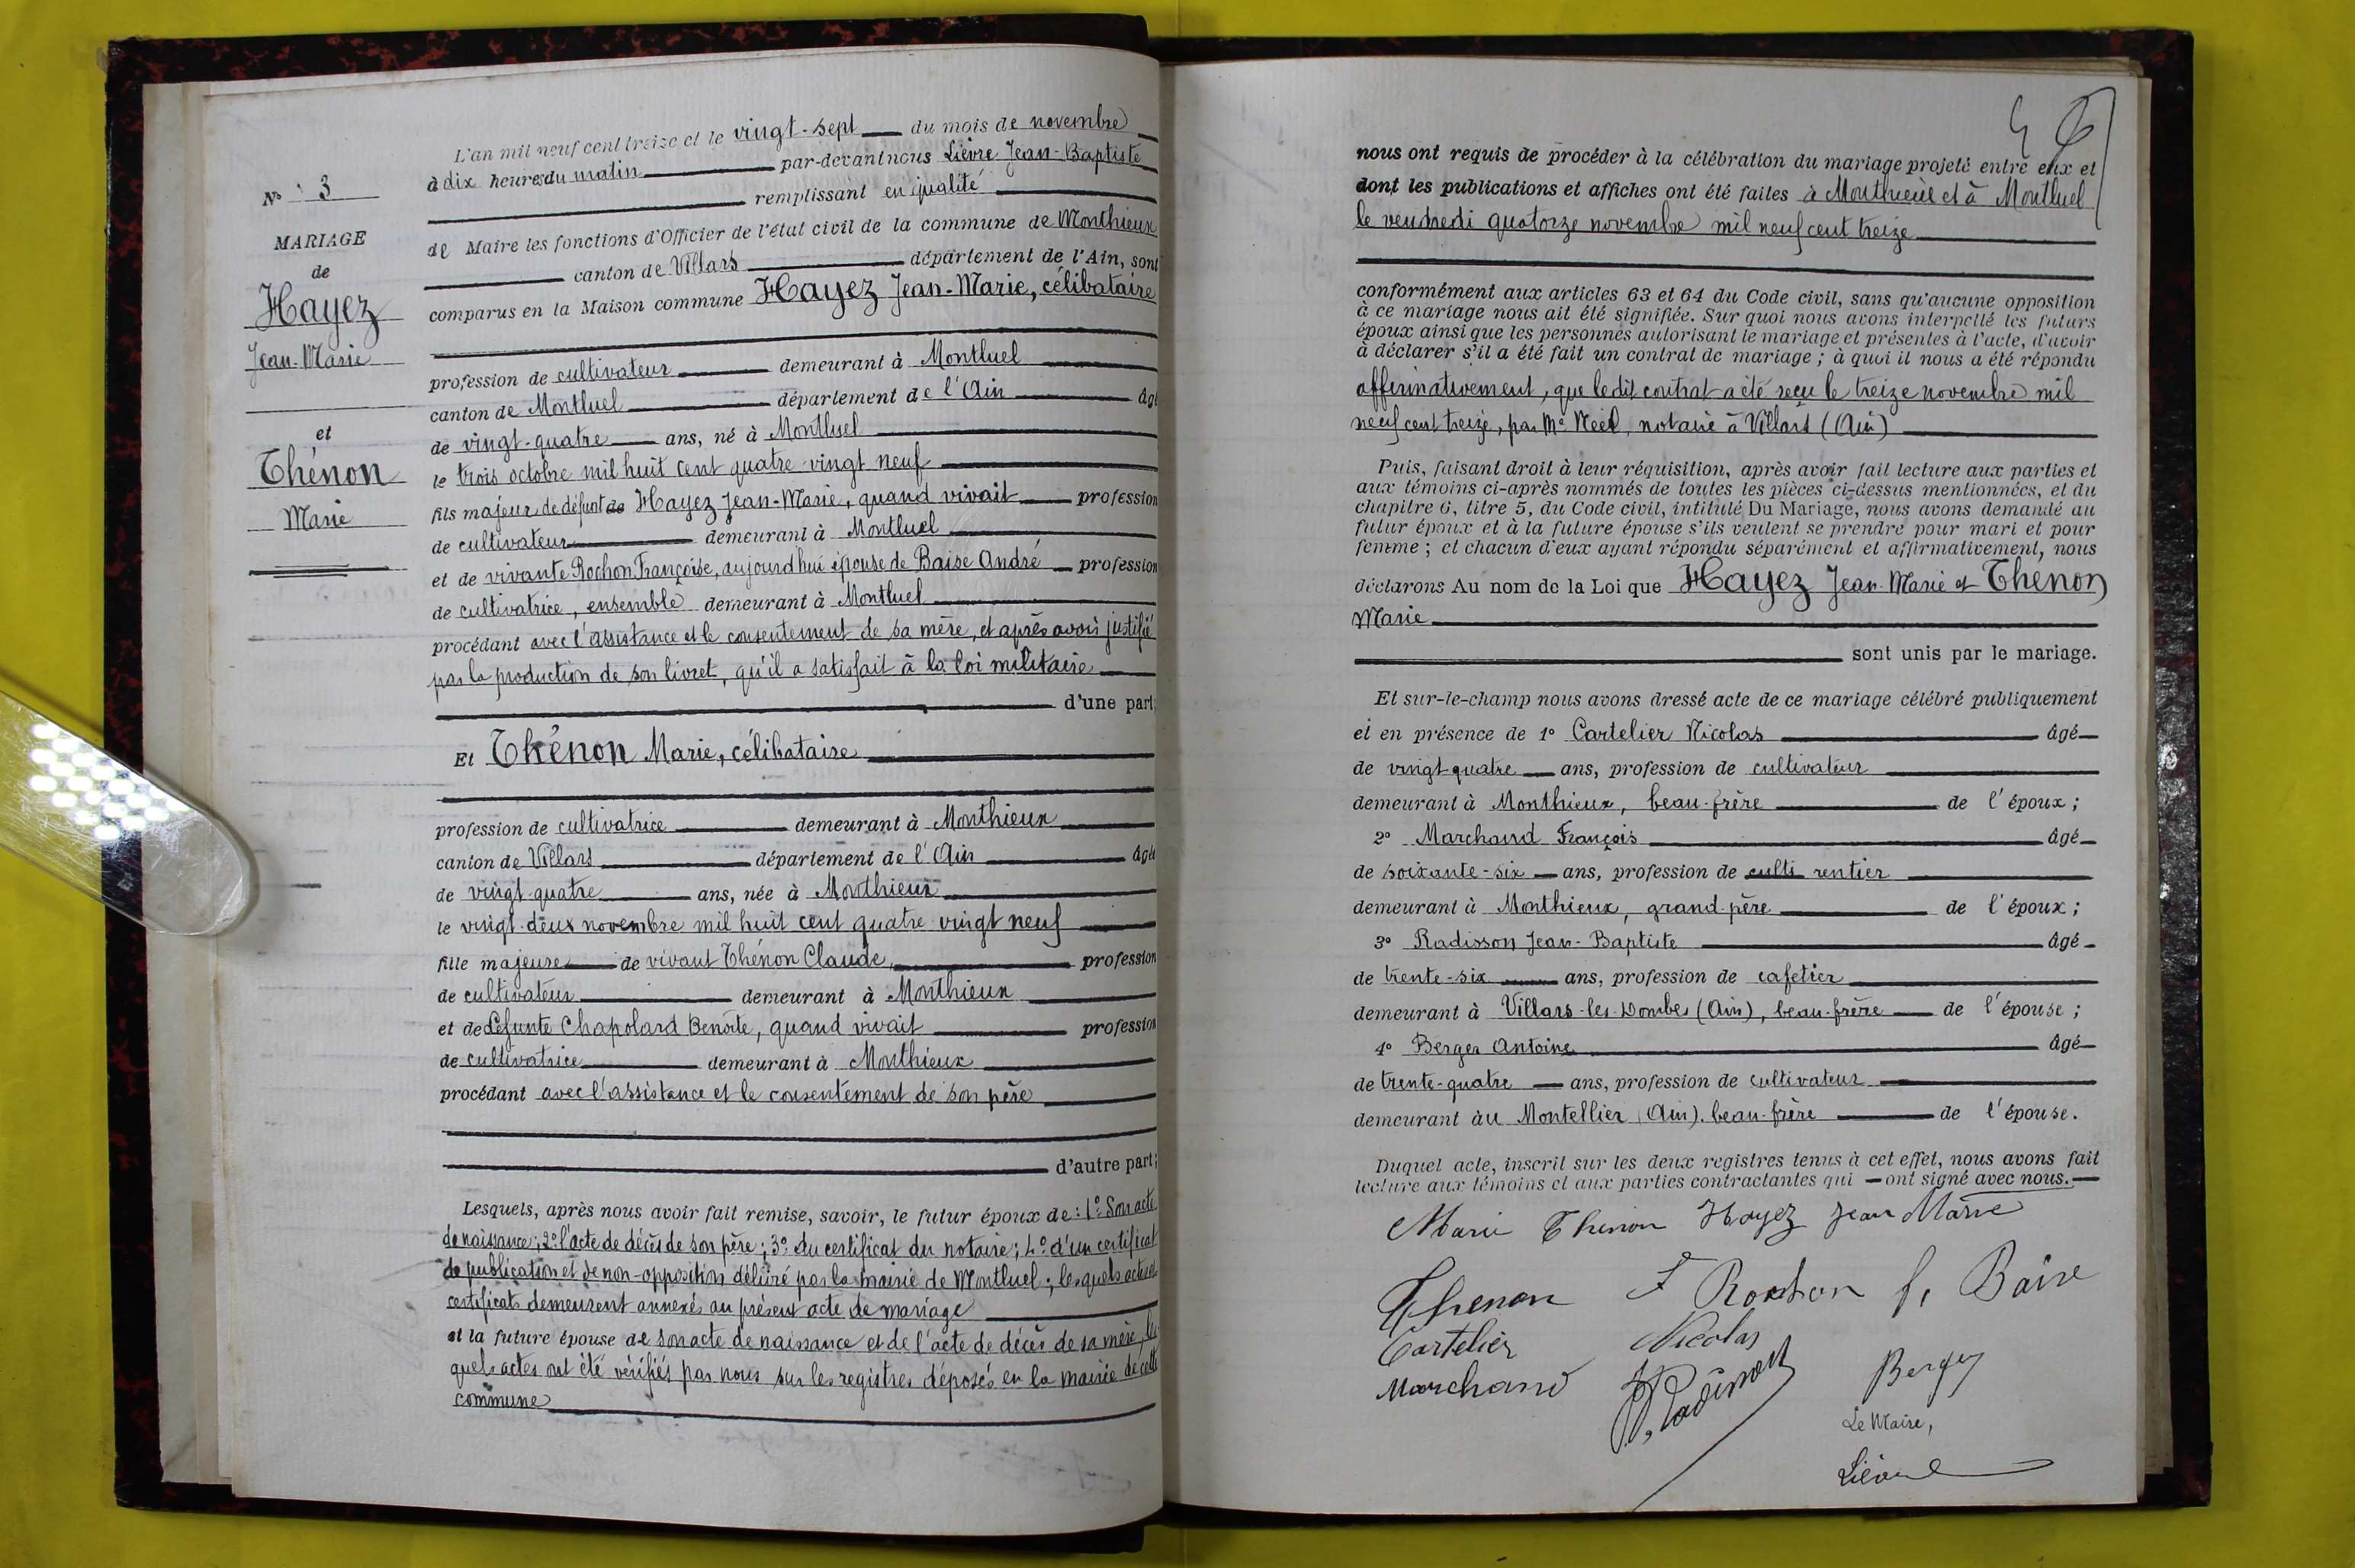 N° 3
MARIAGE
de
Hayez
Jean-Marie
et
Thénon
Marie
L'an mil neuf cent treize et le vingt-sept du mois de novembre
à dix heures du matin par-devant nous Lièvre Jean-Baptiste
remplissant en qualité
de Maire les fonctions d'Officier de l'état civil de la commune de Monthieux
canton de Villars département de l'Ain, sont
comparus en la Maison commune Hayez Jean-Marie, célibataire
profession de cultivateur demeurant à Montluel
canton de Montluel département de l'Ain âgé
de vingt-quatre ans, né à Montluel
le trois octobre mil huit cent quatre-vingt neuf
fils majeur de défunt de Hayez Jean-Marie, quand vivait profession
de cultivateur demeurant à Montluel
et de vivante Rochon Françoise, aujourdhui épouse de Baise André profession
de cultivatrice, ensemble demeurant à Montluel
procédant avec l'assistance et le consentement de sa mère, et après avoir justifié
par la production de son livret, qu'il a satisfait à la loi militaire
d'une part;
Et Thénon Marie, célibataire
profession de cultivatrice demeurant à Monthieux
canton de Villars département de l'Ain âgée
de vingt-quatre ans, née à Monthieux
le vingt-deux novembre mil huit cent quatre vingt neuf
fille majeure de vivant Thénon Claude, profession
de cultivateur demeurant à Monthieux
et de Défunte Chapolard Benoite, quand vivait profession
de cultivatrice demeurant à Monthieux
procédant avec l'assistance et le consentement de son père
d'autre part;
Lesquels, après nous avoir fait remise, savoir, le futur époux de: 1° Son acte
de naissance; 2° l'acte de décès de son père; 3° du certificat du notaire; 4° d'un certificat
de publication et de non-opposition délivré par la mairie de Montluel; lesquels actes et
certificats demeurent annexés au présent acte de mariage
et la future épouse de son acte de naissance et de l'acte de décès de sa mère, les
quels actes ont été vérifiés par nous sur les registres déposés en la mairie de cette
commune
nous ont requis de procéder à la célébration du mariage projeté entre eux et
dont les publications et affiches ont été faites à Monthieux et à Montluel
le vendredi quatorze novembre mil neuf cent treize
conformément aux articles 63 et 64 du Code civil, sans qu'aucune opposition
à ce mariage nous ait été signifiée. Sur quoi nous avons interpellé les futurs
époux ainsi que les personnes autorisant le mariage et présentes à l'acte, d'avoir
à déclarer s'il a été fait un contrat de mariage; à quoi il nous a été répondu
affirmativement, que ledit contrat a été reçu le treize novembre mil
neuf cent treize, par Me notaire à Villars (Ain)
Puis, faisant droit à leur réquisition, après avoir fait lecture aux parties et
aux témoins ci-après nommés de toutes les pièces ci-dessus mentionnées, et du
chapitre 6, titre 5, du Code civil, intitulé Du Mariage, nous avons demandé au
futur époux et à la future épouse s'ils veulent se prendre pour mari et pour
femme; et chacun d'eux ayant répondu séparément et affirmativement, nous
déclarons Au nom de la Loi que Hayez Jean-Marie et Thénon
Marie
sont unis par le mariage.
Et sur-le-champ nous avons dressé acte de ce mariage célébré publiquement
et en présence de 1° Cartelier Nicolas âgé
de vingt-quatre ans, profession de cultivateur
demeurant à Monthieux, beau-frère de l'époux;
2° Marchand François âgé
de soixante-six ans, profession de culti rentier
demeurant à Monthieux, grand-père de l'époux;
3° Radisson Jean-Baptiste âgé
de trente-six ans, profession de cafetier
demeurant à Villars-les-Dombes (Ain), beau-frère de l'épouse;
4° Berger Antoine âgé
de trente-quatre ans, profession de cultivateur
demeurant au Montellier (Ain). beau-frère de l'épouse.
Duquel acte, inscrit sur les deux registres tenus à cet effet, nous avons fait
lecture aux témoins et aux parties contractantes qui ont signé avec nous.
Marie Thenon Hayez Jean Marie
Thenon F Rochon f, Baise
Cartelier Nicolas
Marchand Radisson Berger
Le Maire,
Lièvre